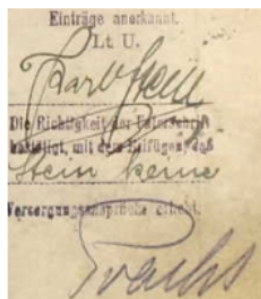 Einträge anerkannt.
Lt U.
Karl Stein
Die Richtigkeit der Unterschrift
bestätigt, mit dem Beifügen, daß
Stein keine
Versorgungsansprüche erhebt.